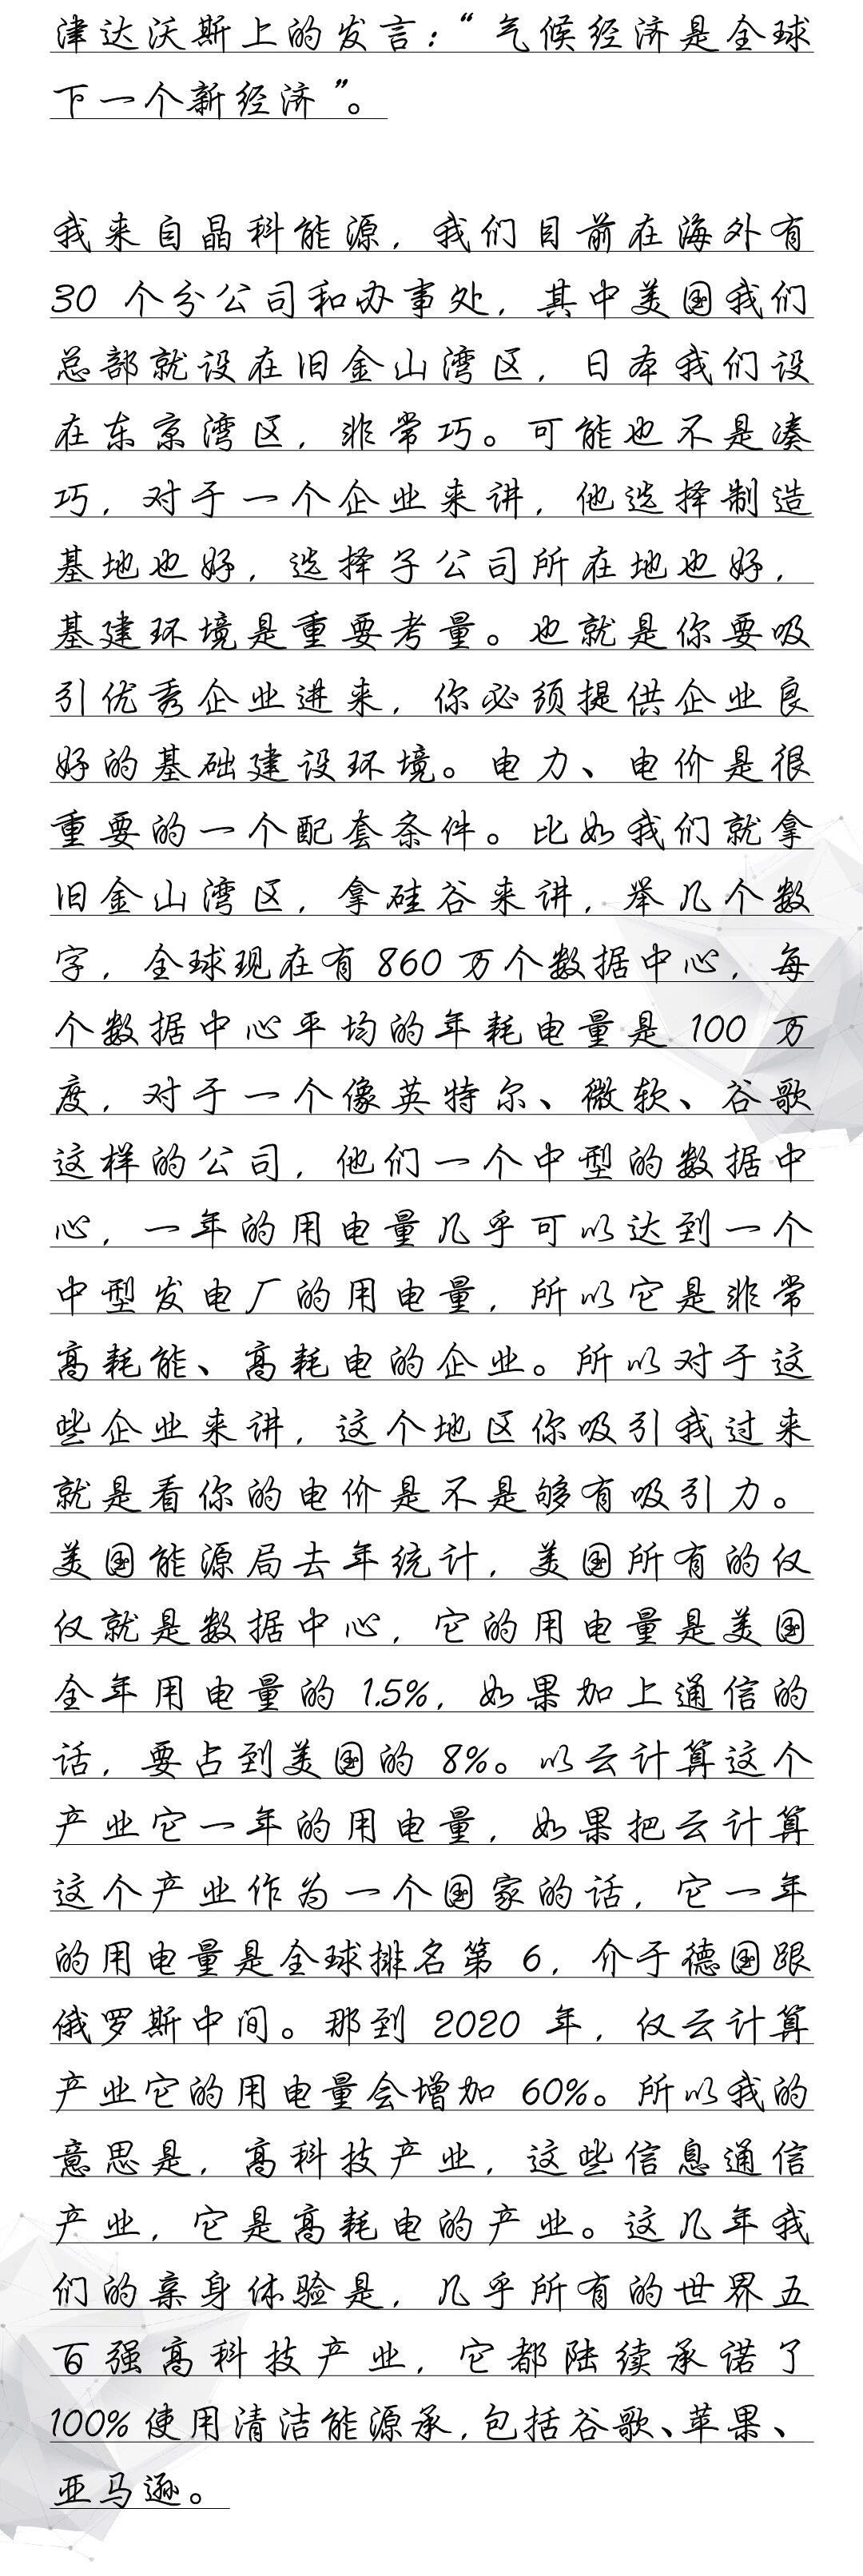 津达沃斯上的发言：“气候经济是全球
下一个新经济”。
我来自晶科能源，我们目前在海外有
30 个分公司和办事处，其中美国我们
总部就设在旧金山湾区，日本我们设
在东京湾区，非常巧。可能也不是凑
巧，对于一个企业来讲，他选择制造
基地也好，选择子公司所在地也好，
基建环境是重要考量。也就是你要吸
引优秀企业进来，你必须提供企业良
好的基础建设环境。电力、电价是很
重要的一个配套条件。比如我们就拿
旧金山湾区，拿硅谷来讲，举几个数
字，全球现在有 860 万个数据中心，每
个数据中心平均的年耗电量是 100 万
度，对于一个像英特尔、微软、谷歌
这样的公司，他们一个中型的数据中
心，一年的用电量几乎可以达到一个
中型发电厂的用电量，所以它是非常
高耗能、高耗电的企业。所以对于这
些企业来讲，这个地区你吸引我过来
就是看你的电价是不是够有吸引力。
美国能源局去年统计，美国所有的仅
仅就是数据中心，它的用电量是美国
全年用电量的 1.5%，如果加上通信的
话，要占到美国的 8%。以云计算这个
产业它一年的用电量，如果把云计算
这个产业作为一个国家的话，它一年
的用电量是全球排名第 6，介于德国跟
俄罗斯中间。那到 2020 年，仅云计算
产业它的用电量会增加 60%。所以我的
意思是，高科技产业，这些信息通信
产业，它是高耗电的产业。这几年我
们的亲身体验是，几乎所有的世界五
百强高科技产业，它都陆续承诺了
100% 使用清洁能源承，包括谷歌、苹果、
亚马逊。